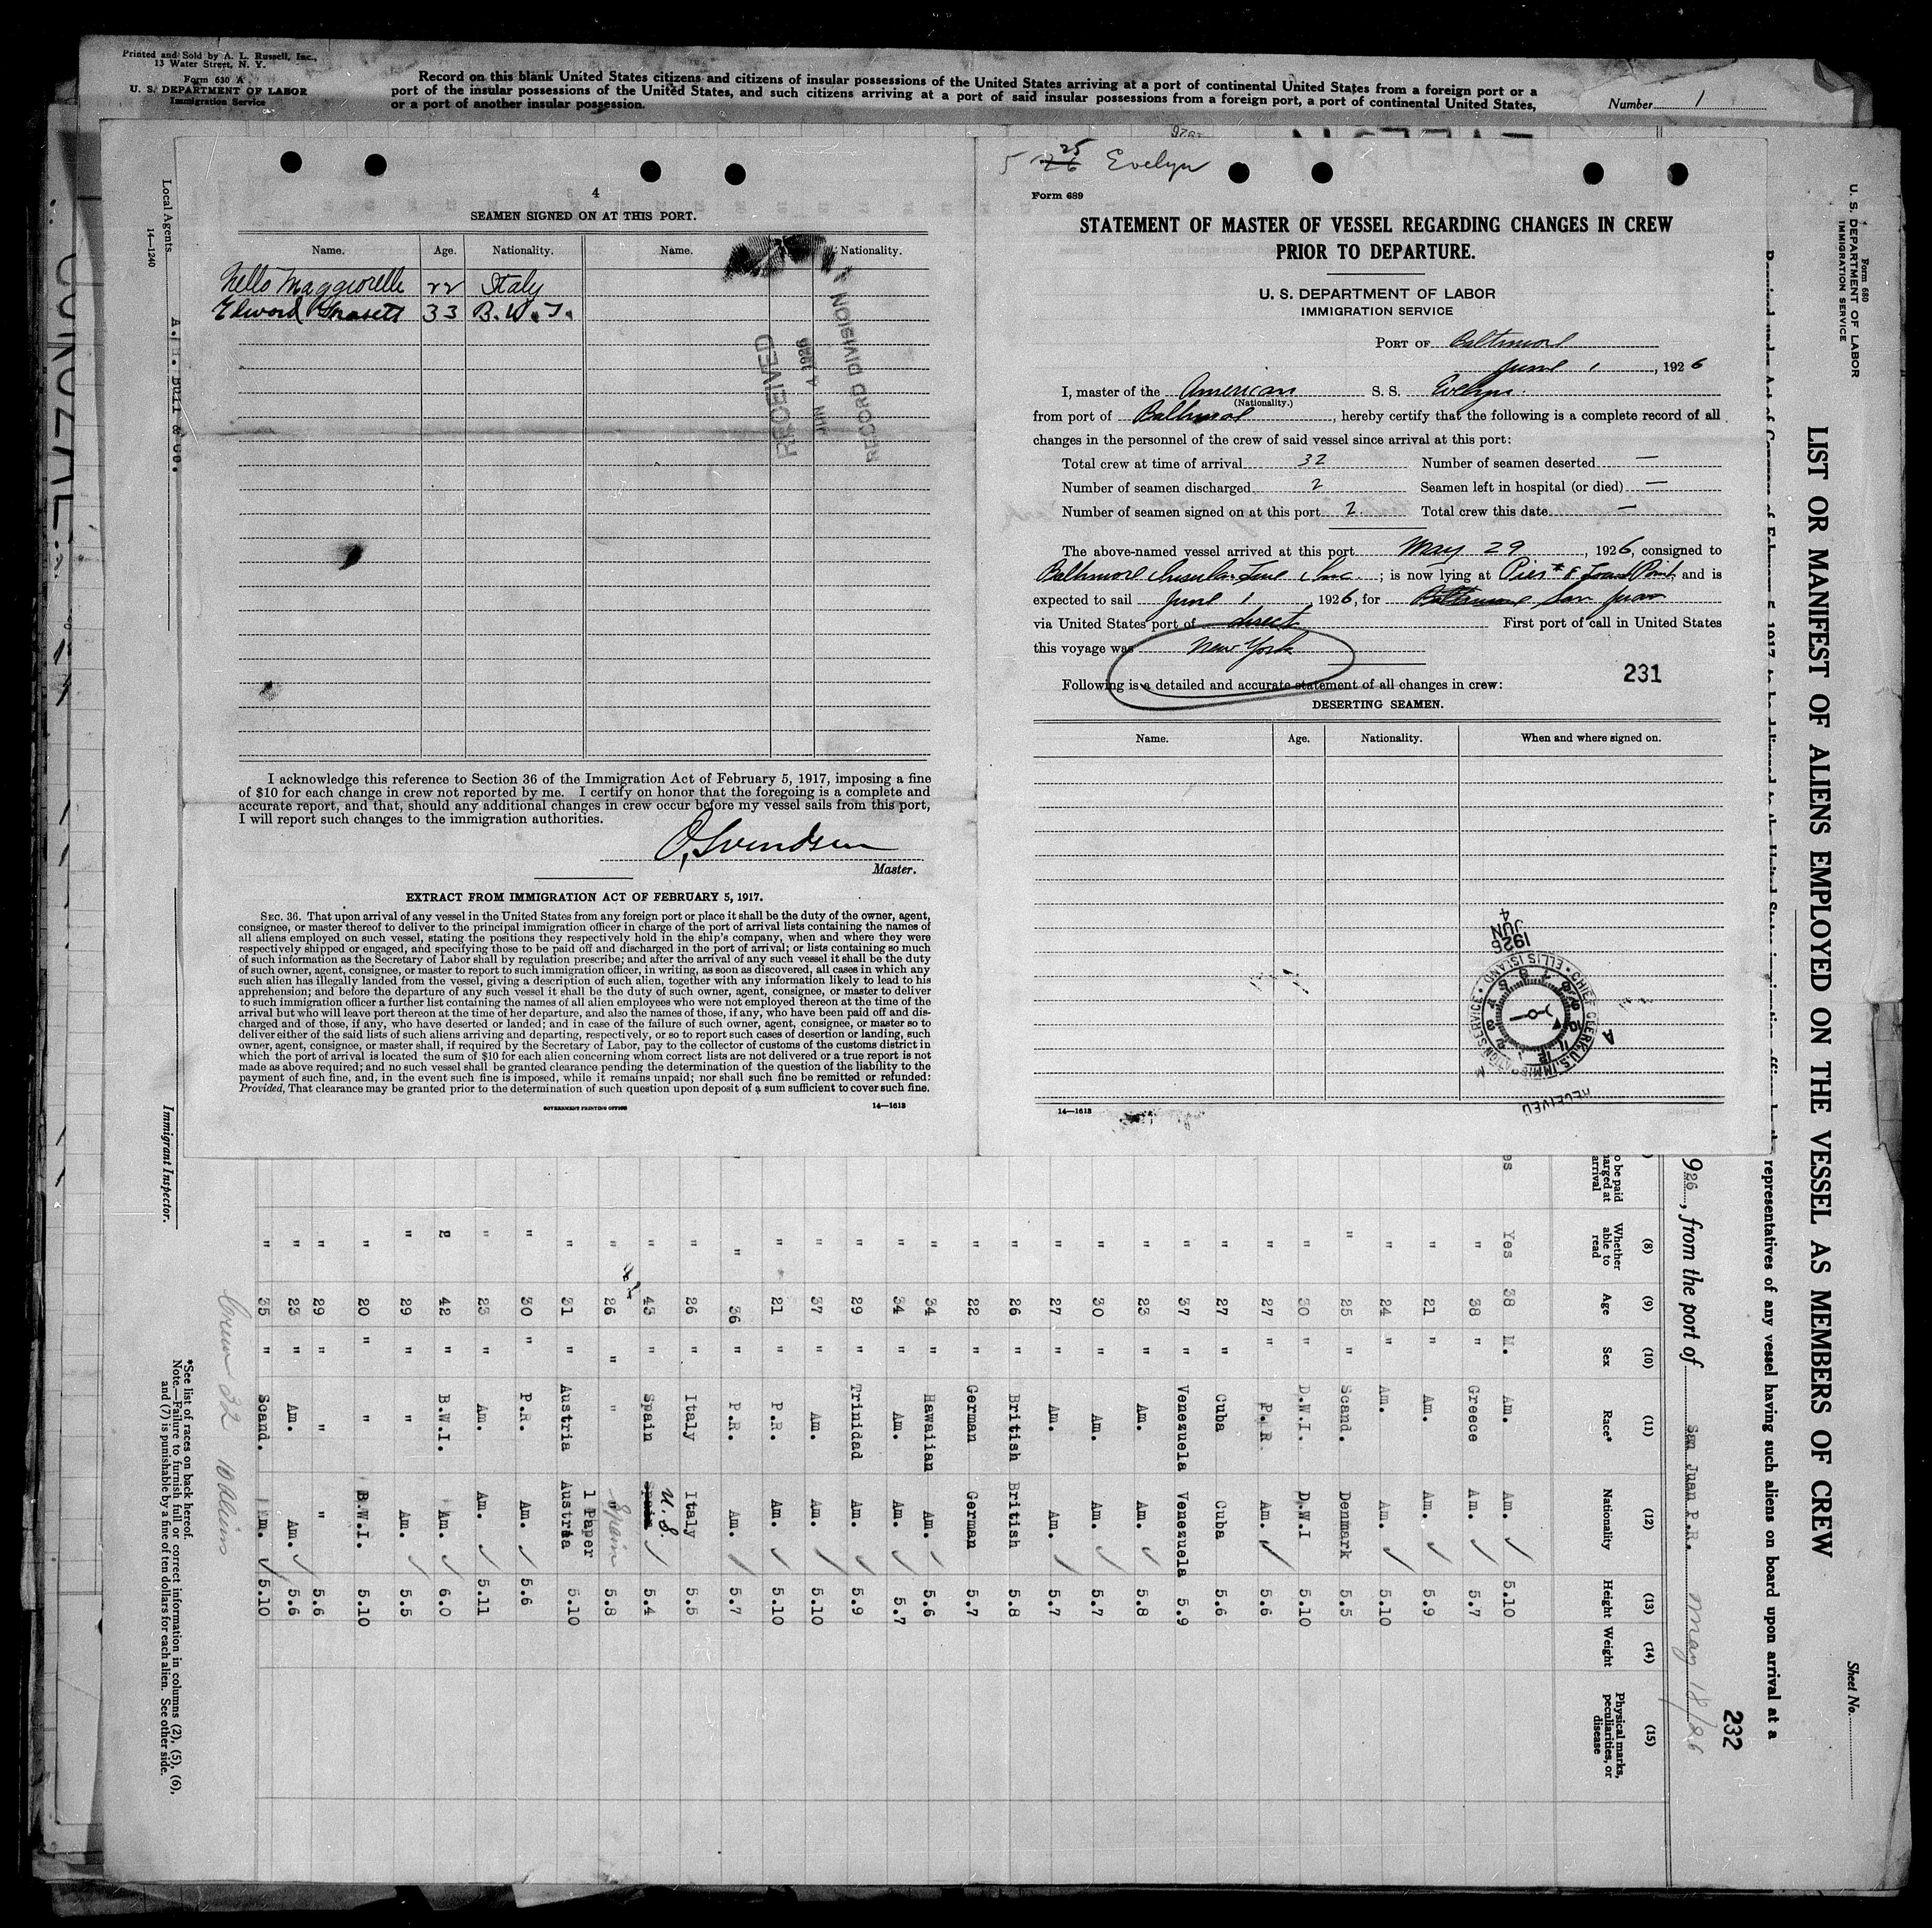 Printed and Sold by A. L. Russell, Inc.,
13 Water Street, N. Y.
Form 630 A
U. S. DEPARTMENT OF LABOR
Immigration Service
Record on this blank United States citizens and citizens of insular possessions of the United States arriving at a port of continental United States from a foreign port or a
port of the insular possessions of the United States, and such citizens arriving at a port of said insular possessions from a foreign port, a port of continental United States,
or a port of another insular possession.
Number 1
4
SEAMEN SIGNED ON AT THIS PORT.
Name. Age. Nationality. Name. Nationality.
Nello Maggiorelli 22 Italy
Edward 33 B. W. I.
RECEIVED
JUN 4 1926
RECORD DIVISION
I acknowledge this reference to Section 36 of the Immigration Act of February 5, 1917, imposing a fine
of $10 for each change in crew not reported by me. I certify on honor that the foregoing is a complete and
accurate report, and that, should any additional changes in crew occur before my vessel sails from this port,
I will report such changes to the immigration authorities.
O. Svendsen
Master.
EXTRACT FROM IMMIGRATION ACT OF FEBRUARY 5, 1917.
SEC. 36. That upon arrival of any vessel in the United States from any foreign port or place it shall be the duty of the owner, agent,
consignee, or master thereof to deliver to the principal immigration officer in charge of the port of arrival lists containing the names of
all aliens employed on such vessel, stating the positions they respectively hold in the ship's company, when and where they were
respectively shipped or engaged, and specifying those to be paid off and discharged in the port of arrival; or lists containing so much
of such information as the Secretary of Labor shall by regulation prescribe; and after the arrival of any such vessel it shall be the duty
of such owner, agent, consignee, or master to report to such immigration officer, in writing, as soon as discovered, all cases in which any
such alien has illegally landed from the vessel, giving a description of such alien, together with any information likely to lead to his
apprehension; and before the departure of any such vessel it shall be the duty of such owner, agent, consignee, or master to deliver
to such immigration officer a further list containing the names of all alien employees who were not employed thereon at the time of the
arrival but who will leave port thereon at the time of her departure, and also the names of those, if any, who have been paid off and dis-
charged and of those, if any, who have deserted or landed; and in case of the failure of such owner, agent, consignee, or master so to
deliver either of the said lists of such aliens arriving and departing, respectively, or so to report such cases of desertion or landing, such
owner, agent, consignee, or master shall, if required by the Secretary of Labor, pay to the collector of customs of the customs district in
which the port of arrival is located the sum of $10 for each alien concerning whom correct lists are not delivered or a true report is not
made as above required; and no such vessel shall be granted clearance pending the determination of the question of the liability to the
payment of such fine, and, in the event such fine is imposed, while it remains unpaid; nor shall such fine be remitted or refunded:
Provided, That clearance may be granted prior to the determination of such question upon deposit of a sum sufficient to cover such fine.
GOVERNMENT PRINTING OFFICE 14—1618
5 26 25 Evelyn
Form 689
STATEMENT OF MASTER OF VESSEL REGARDING CHANGES IN CREW
PRIOR TO DEPARTURE.
U. S. DEPARTMENT OF LABOR
IMMIGRATION SERVICE
PORT OF Baltimore
June 1, 1926
I, master of the American S. S. Evelyn.
(Nationality.)
from port of Baltimore, hereby certify that the following is a complete record of all
changes in the personnel of the crew of said vessel since arrival at this port:
Total crew at time of arrival 32 Number of seamen deserted —
Number of seamen discharged 2 Seamen left in hospital (or died) —
Number of seamen signed on at this port 2 Total crew this date —
The above-named vessel arrived at this port May 29, 1926, consigned to
Baltimore Insular Line Inc; is now lying at Pier # 8 Locust Point, and is
expected to sail June 1, 1926, for Baltimore San Juan
via United States port of direct First port of call in United States
this voyage was New York
231
Following is a detailed and accurate statement of all changes in crew:
DESERTING SEAMEN.
Name. Age. Nationality. When and where signed on.
1926
JUN
4
CHIEF CLERK, U.S. IMMIGRATION SERVICE • ELLIS ISLAND •
RECEIVED
14—1618
Form 680
U. S. DEPARTMENT OF LABOR
IMMIGRATION SERVICE
LIST OR MANIFEST OF ALIENS EMPLOYED ON THE VESSEL AS MEMBERS OF CREW
Sheet No.
representatives of any vessel having such aliens on board upon arrival at a
926, from the port of San Juan P.R. May 18/26
232
(8) (9) (10) (11) (12) (13) (14) (15)
Whether able to read Age Sex Race* Nationality Height Weight Physical marks, peculiarities, or disease
Yes 38 M. Am. Am. ✓ 5.10
" 38 " Greece Am. ✓ 5.7
" 21 " Am. Am. ✓ 5.9
" 24 " Am. Am. ✓ 5.10
" 25 " Scand. Denmark 5.5
" 30 " D.W.I. D.W.I 5.10
" 27 " P.R. Am. ✓ 5.6
" 27 " Cuba Cuba 5.6
" 37 " Venezuela Venezuela 5.9
" 23 " Am. Am. ✓ 5.8
" 30 " Am. Am. ✓ 5.7
" 27 " Am. Am. ✓ 5.7
" 26 " British British 5.8
" 22 " German German 5.7
" 34 " Hawaiian Am. ✓ 5.6
" 34 " Am. Am. ✓ 5.7
" 29 " Trinidad Am. ✓ 5.9
" 37 " Am. Am. ✓ 5.10
" 21 " P.R. Am. ✓ 5.10
" 36 " P.R. Am. ✓ 5.7
" 26 " Italy Italy 5.5
" 43 " Spain Spain U.S. ✓ 5.4
" 26 " " " Spain 5.8
" 31 " Austria 1 Paper Austria 5.10
" 30 " P.R. Am. ✓ 5.6
" 23 " Am. Am. ✓ 5.11
" 42 " B.W.I. Am. ✓ 6.0
" 29 " " Am. ✓ 5.5
" 20 " " B.W.I. 5.10
" 29 " " " 5.6
" 23 " Am. Am. ✓ 5.6
" 35 " Scand. Am. ✓ 5.10
Crew 32 10 Aliens
*See list of races on back hereof.
Note.—Failure to furnish full or correct information in columns (2), (5), (6),
and (7) is punishable by a fine of ten dollars for each alien. See other side.
Local Agents
14—1240
A. H. Bull & Co.
Immigrant Inspector.